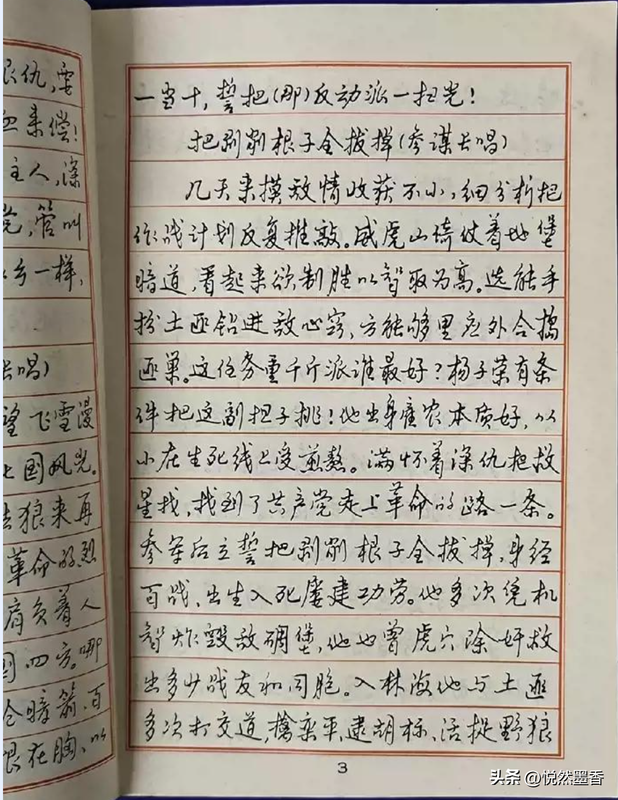 恨仇,要
血来偿!
主人,深
党,管叫
乡一样,
长唱)
望飞雪漫
国风光。
去狼来再
革命的烈
肩负着人
国四方。哪
暗箭,百
恨在胸,以
一当十,誓把(那)反动派一扫光!
把剥削根子全拔掉(参谋长唱)
几天来摸敌情收获不小,细分析把
作战计划反复推敲。威虎山倚仗着地堡
暗道,看起来欲制胜以智取为高。选能手
扮土匪钻进敌心窍,方能够里应外合捣
匪巢。这任务重千斤派谁最好?杨子荣有条
件把这副担子挑!他出身雇农本质好,从
小在生死线上受煎熬。满怀着深仇把救
星找,找到了共产党走上革命的路一条。
参军后立誓把剥削根子全拔掉,身经
百战,出生入死屡建功劳。他多次凭机
智炸毁敌碉堡,他也曾虎穴除奸救
出多少战友和同胞。入林海他与土匪
多次打交道,擒栾平,逮胡标,活捉野狼
3
头条 @悦然墨香